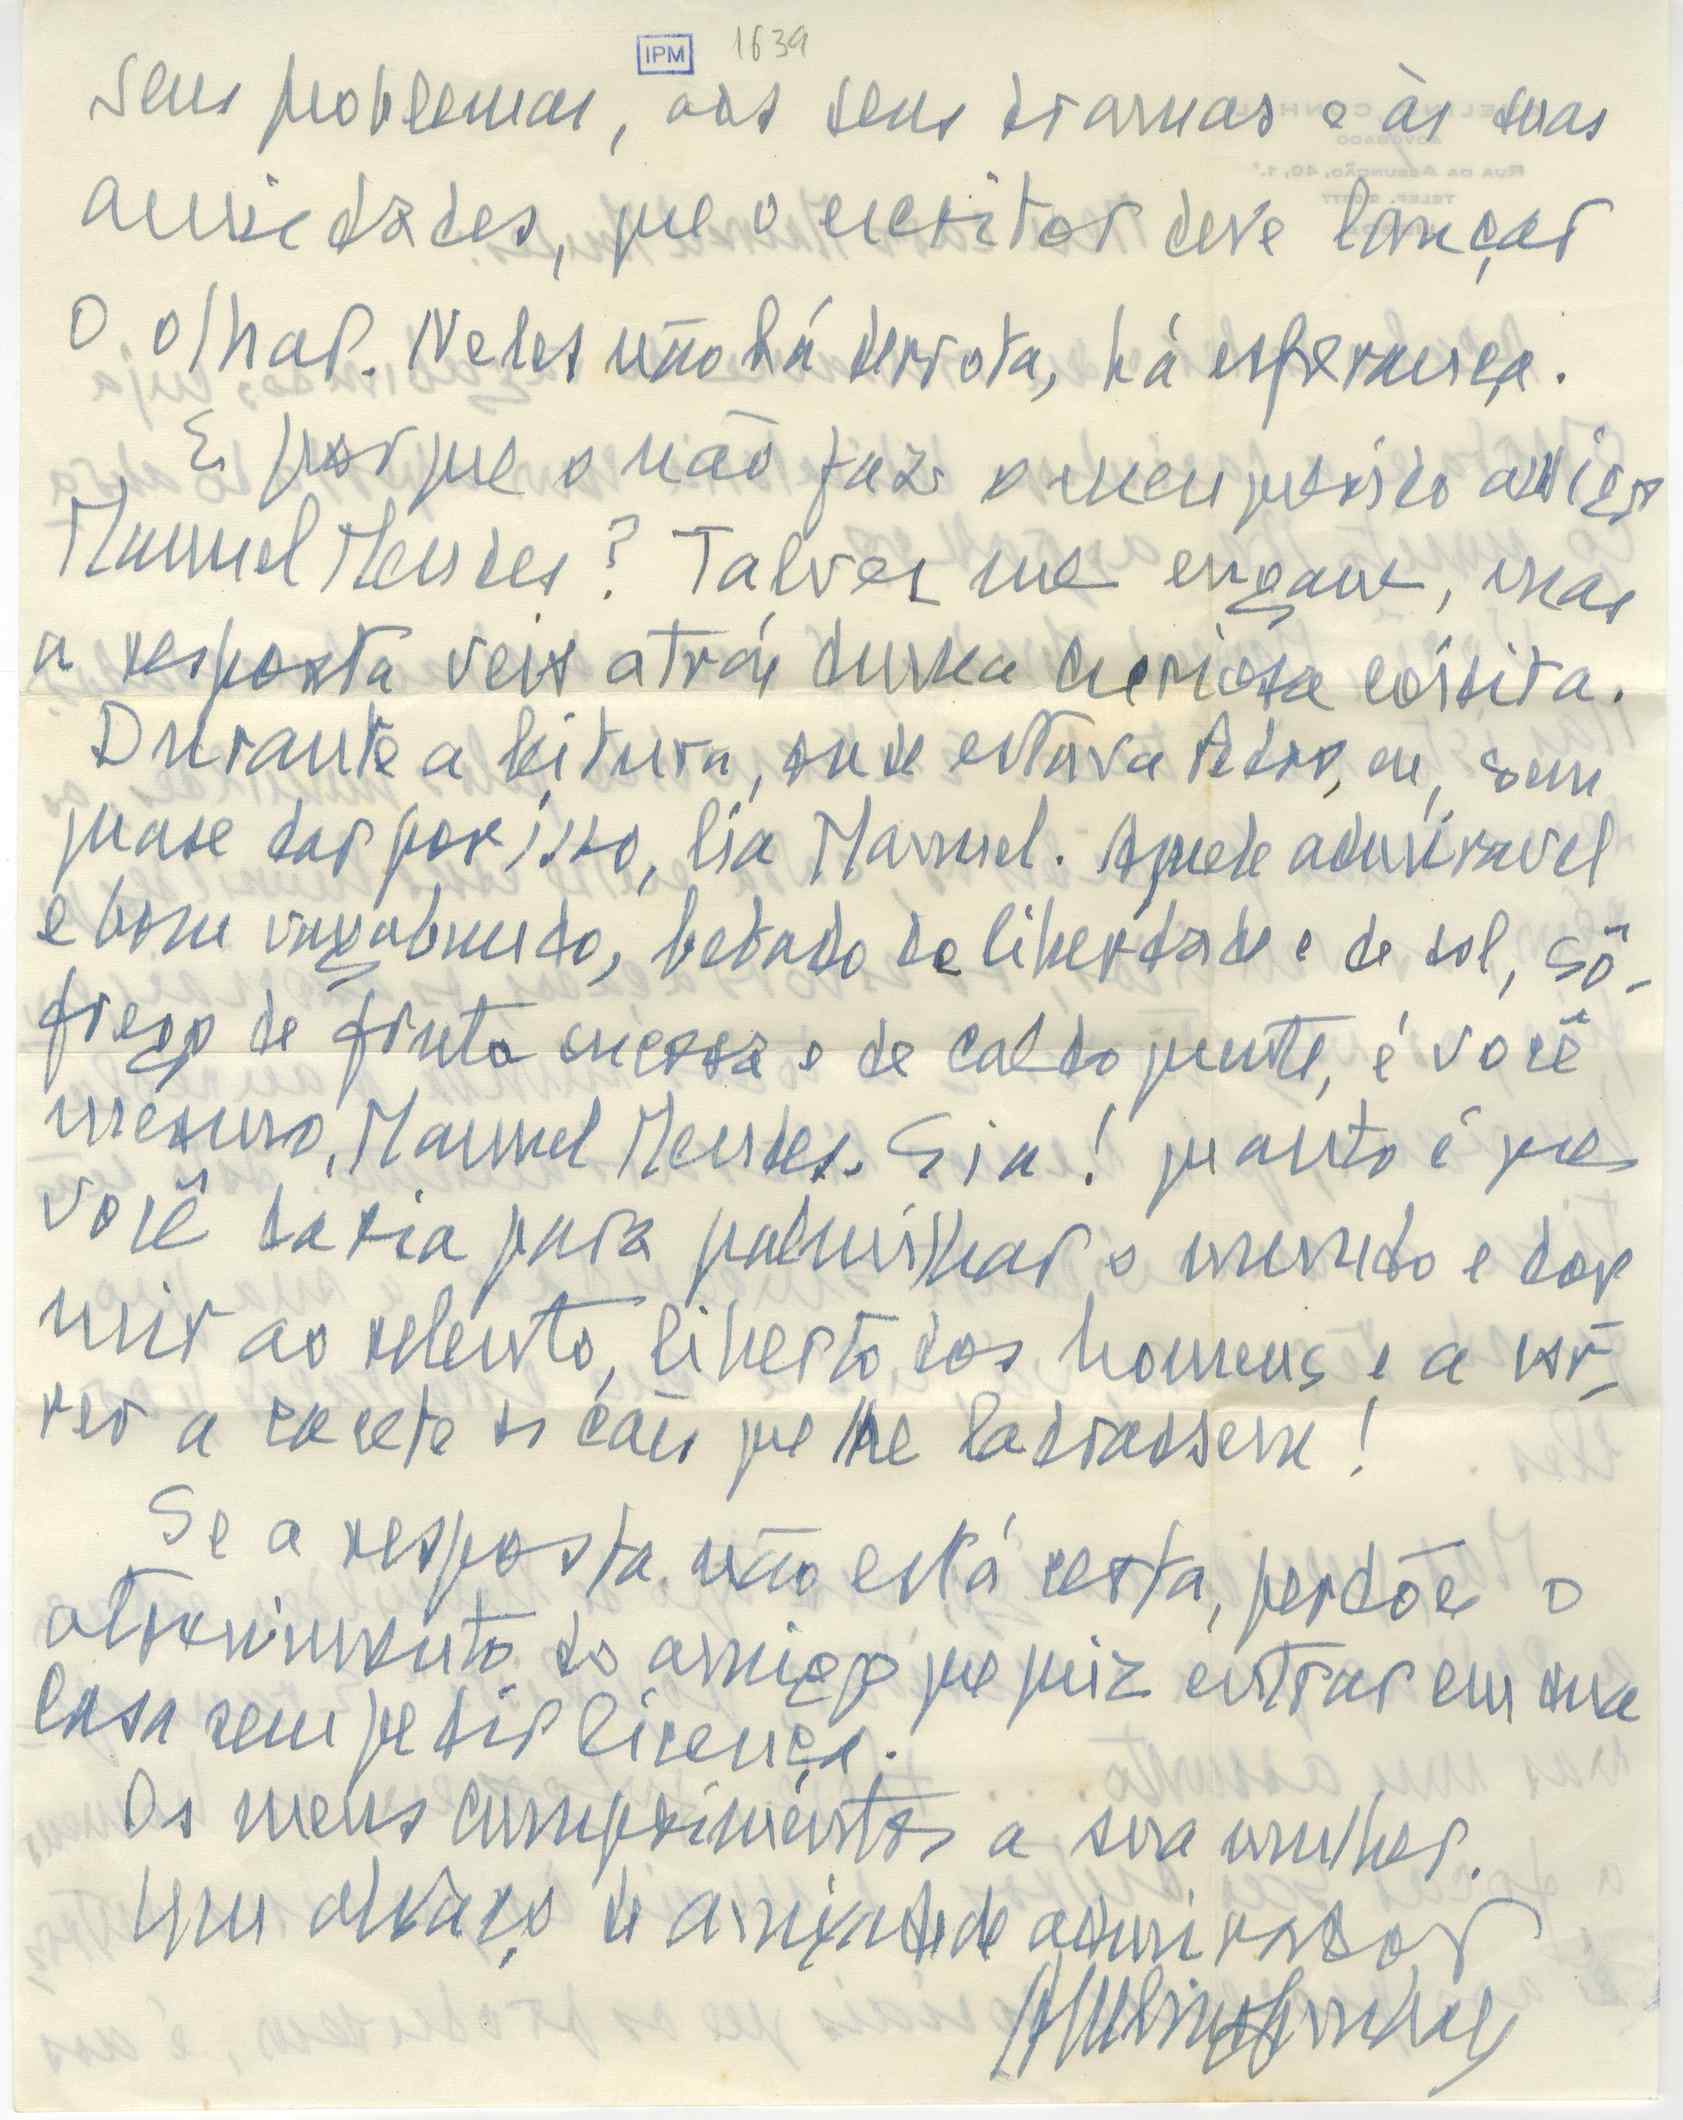 IPM 1639
seus problemas, aos seus dramas e às suas
ansiedades, que o escritor deve lançar
o olhar. Neles não há derrota, há esperança.
E porque o não faz o meu prezado amigo
Manuel Mendes? Talvez me engane, mas
a resposta veio atrás duma curiosa
Durante a leitura, onde estava Pedro, eu, sem
quase dar por isso, lia Manuel. Aquele admiravel
e bom vagabundo, bebado de liberdade e de sol, sô-
frego de fruta sucosa e de caldo quente, é você
mesmo, Manuel Mendes. Eia! quanto é que
você daria para palmilhar o mundo e dor
mir ao relento, liberto dos homens e a var-
rer a cacete os cães que lhe ladrassem!
Se a resposta não está certa, perdôe o
atrevimento do amigo que quiz entrar em sua
casa sem pedir licença.
Os meus cumprimentos a sua mulher.
Um abraço de amizade de admirador